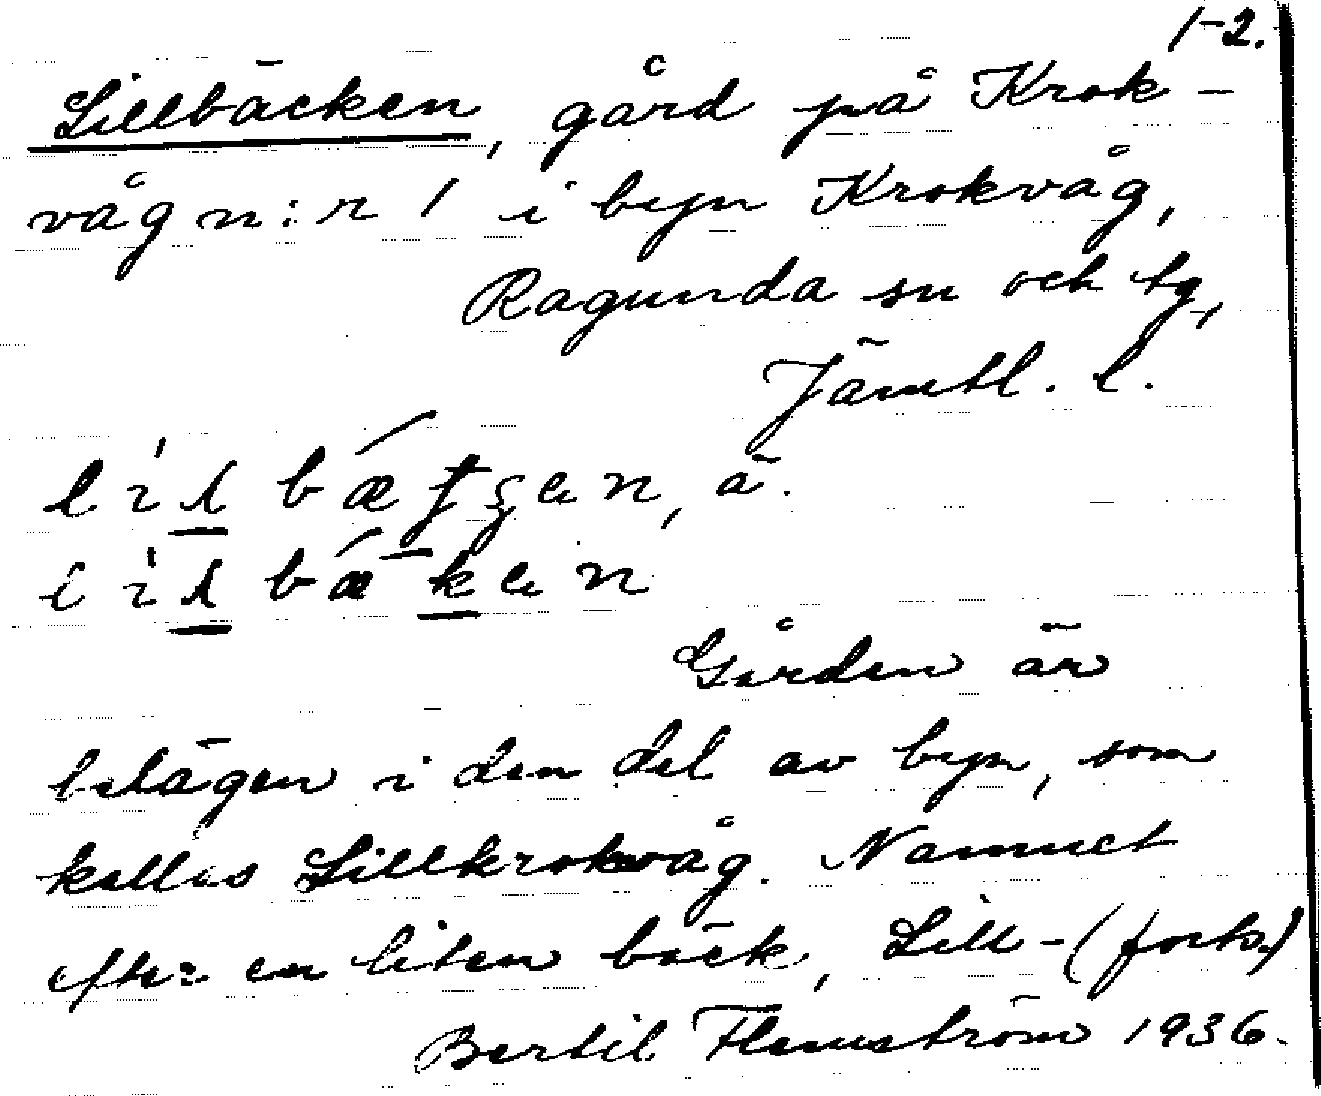 1-2.
Lillbäcken, gård på Krok-
våg n:r 1 i byn Krokvåg,
Ragunda sn och tg,
Jämtl. l.
Gården är
belägen i den del av byn, som
kallas Lillkrokvåg. Namnet
efter en liten bäck, Lill-(forts.)
Bertil Flemström 1936.